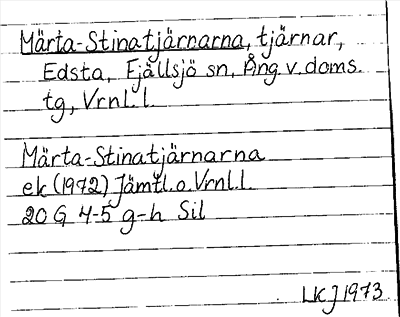 Märta-Stinatjärnarna, tjärnar,
Edsta, Fjällsjö sn, Ång. v. doms.
tg, Vrnl. l.
Märta-Stinatjärnarna
ek (1972) Jämtl. o. Vrnl. l.
20 G 4-5 g-h Sil
LKJ 1973